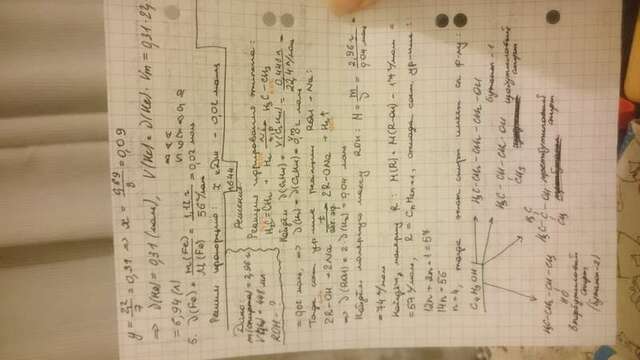 y = 2,2/7 = 0,31 ⇒ x = 0,69/8 = 0,09
⇒ ν(He) = 0,31 (моль), V(He) = ν(He) · Vm = 0,31 · 22,
= 6,94 (л)
5. ν(Fe) = m(Fe)/M(Fe) = 1,12 г/56 г/моль = 0,02 моль
Решим пропорцию: x — 0,02 моль
n644.
Дано:
m(спирта) = 2,96 г
V(H₂) = 448 мл
ROH - ?
Решение:
Реакция гидрирования этилена:
H₂C=CH₂ + H₂ H₃C-CH₃
Найдём ν(C₂H₄) = V(C₂H₄) = 0,448 л/22,4 л/моль =
= 0,02 моль, ⇒ ν(H₂) = ν(C₂H₄) = моль
Тогда сост. ур-ние реакции ROH + Na:
2R-OH + 2Na → 2R-ONa + H₂↑
⇒ ν(ROH) = 2·ν(H₂) = 0,04 моль
Найдём молярную массу ROH: M = m/ν = 2,96 г/0,04 моль =
= 74 г/моль
Найдём молярную R: M(R) = M(R-OH) - 17 г/моль =
= 57 г/моль, R = CnH2n+1, отсюда сост. ур-ние:
12n + 2n + 1 = 57
14n = 56
n = 4, тогда этот спирт имеет ф-лу:
C₄H₉OH
H₃C-CH₂-CH₂-CH₂-OH
бутанол-1
H₃C-CH-CH₂-OH
CH₃
изобутиловый
спирт
H₃C
H₃C-C-OH третбутиловый
спирт
CH₃
H₃C-CH₂-CH-CH₃
HO
Вторбутиловый
спирт
(бутанол-2)